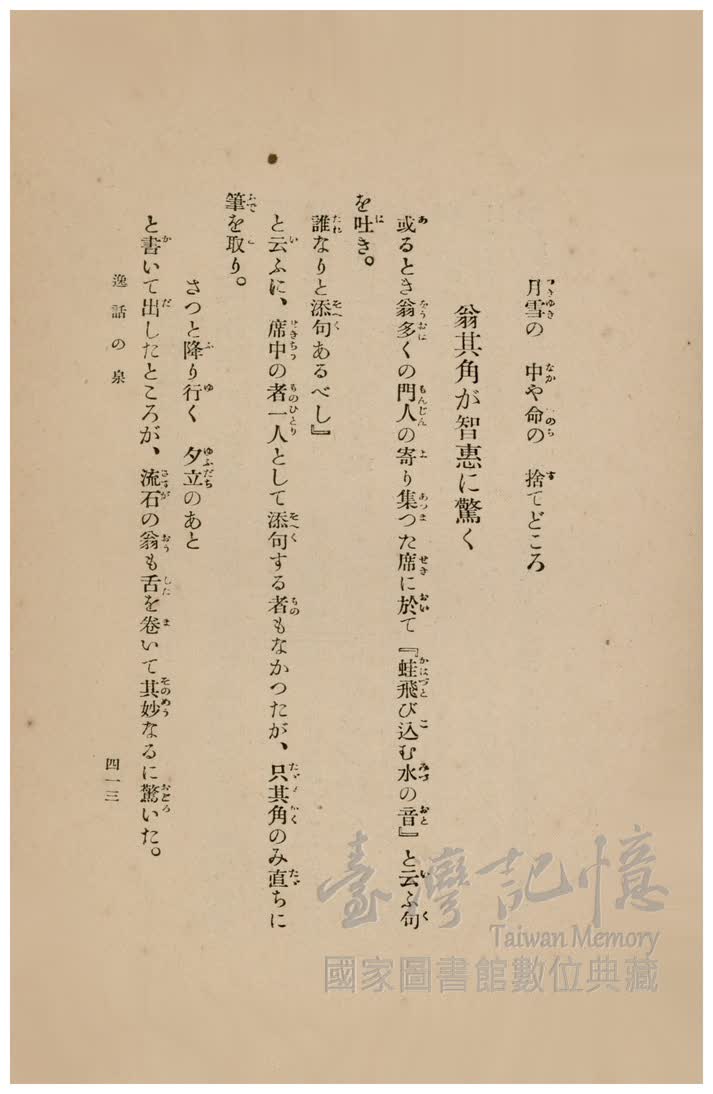 月雪の　中や命の　捨てどころ
翁其角が智惠に驚く
或るとき翁多くの門人の寄り集つた席に於て『蛙飛び込む水の音』と云ふ句
を吐き。
誰なりと添句あるべし』
と云ふに、席中の者一人として添句する者もなかつたが、只其角のみ直ちに
筆を取り。
さつと降り行く　夕立のあと
と書いて出したところが、流石の翁も舌を卷いて其妙なるに驚いた。
逸話の泉
四一三
臺灣記憶
Taiwan Memory
國家圖書館數位典藏